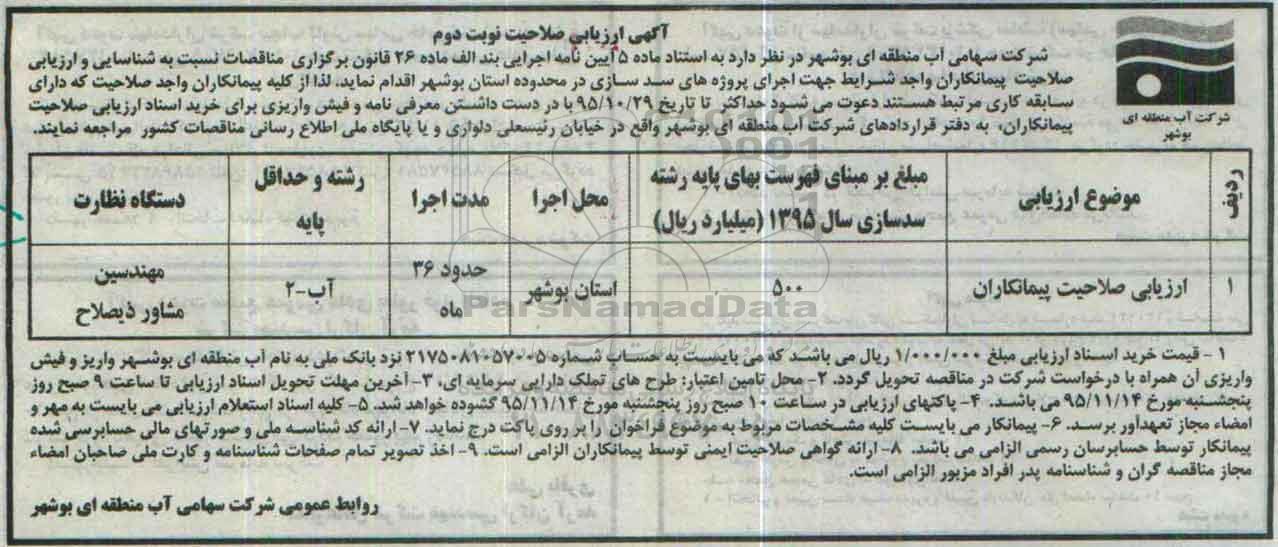 آگهی ارزیابی صلاحیت نوبت دوم
شرکت سهامی آب منطقه ای بوشهر در نظر دارد به استناد ماده ۵ آیین نامه اجرایی بند الف ماده ۲۶ قانون برگزاری مناقصات نسبت به شناسایی و ارزیابی
صلاحیت پیمانکاران واجد شرایط جهت اجرای پروژه های سد سازی در محدوده استان بوشهر اقدام نماید، لذا از کلیه پیمانکاران واجد صلاحیت که دارای
سابقه کاری مرتبط هستند دعوت می شود حداکثر تا تاریخ ۹۵/۱۰/۲۹ با در دست داشتن معرفی نامه و فیش واریزی برای خرید اسناد ارزیابی صلاحیت
پیمانکاران، به دفتر قراردادهای شرکت آب منطقه ای بوشهر واقع در خیابان رئیسعلی دلواری و یا پایگاه ملی اطلاع رسانی مناقصات کشور مراجعه نمایند.
شرکت آب منطقه ای
بوشهر
ردیف
موضوع ارزیابی
مبلغ بر مبنای فهرست بهای پایه رشته
سدسازی سال ۱۳۹۵ (میلیارد ریال)
محل اجرا
مدت اجرا
رشته و حداقل
پایه
دستگاه نظارت
۱
ارزیابی صلاحیت پیمانکاران
۵۰۰
استان بوشهر
حدود ۳۶
ماه
آب-۲
مهندسین
مشاور دیصلاح
ParsNamadData
۱ - قیمت خرید اسناد ارزیابی مبلغ ۱/۰۰۰/۰۰۰ ریال می باشد که می بایست به حساب شماره ۲۱۷۵۰۸۱۰۵۷۰۰۵ نزد بانک ملی به نام آب منطقه ای بوشهر واریز و فیش
واریزی آن همراه با درخواست شرکت در مناقصه تحویل گردد. ۲- محل تامین اعتبار: طرح های تملک دارایی سرمایه ای، ۳- آخرین مهلت تحویل اسناد ارزیابی تا ساعت ۹ صبح روز
پنجشنبه مورخ ۹۵/۱۱/۱۴ می باشد. ۴- پاکتهای ارزیابی در ساعت ۱۰ صبح روز پنجشنبه مورخ ۹۵/۱۱/۱۴ گشوده خواهد شد. ۵- کلیه اسناد استعلام ارزیابی می بایست به مهر و
امضاء مجاز تعهدآور برسد. ۶- پیمانکار می بایست کلیه مشخصات مربوط به موضوع فراخوان را بر روی پاکت درج نماید. ۷- ارائه کد شناسه ملی و صورتهای مالی حسابرسی شده
پیمانکار توسط حسابرسان رسمی الزامی می باشد. ۸- ارائه گواهی صلاحیت ایمنی توسط پیمانکاران الزامی است. ۹- اخذ تصویر تمام صفحات شناسنامه و کارت ملی صاحبان امضاء
مجاز مناقصه گران و شناسنامه پدر افراد مزبور الزامی است.
روابط عمومی شرکت سهامی آب منطقه ای بوشهر